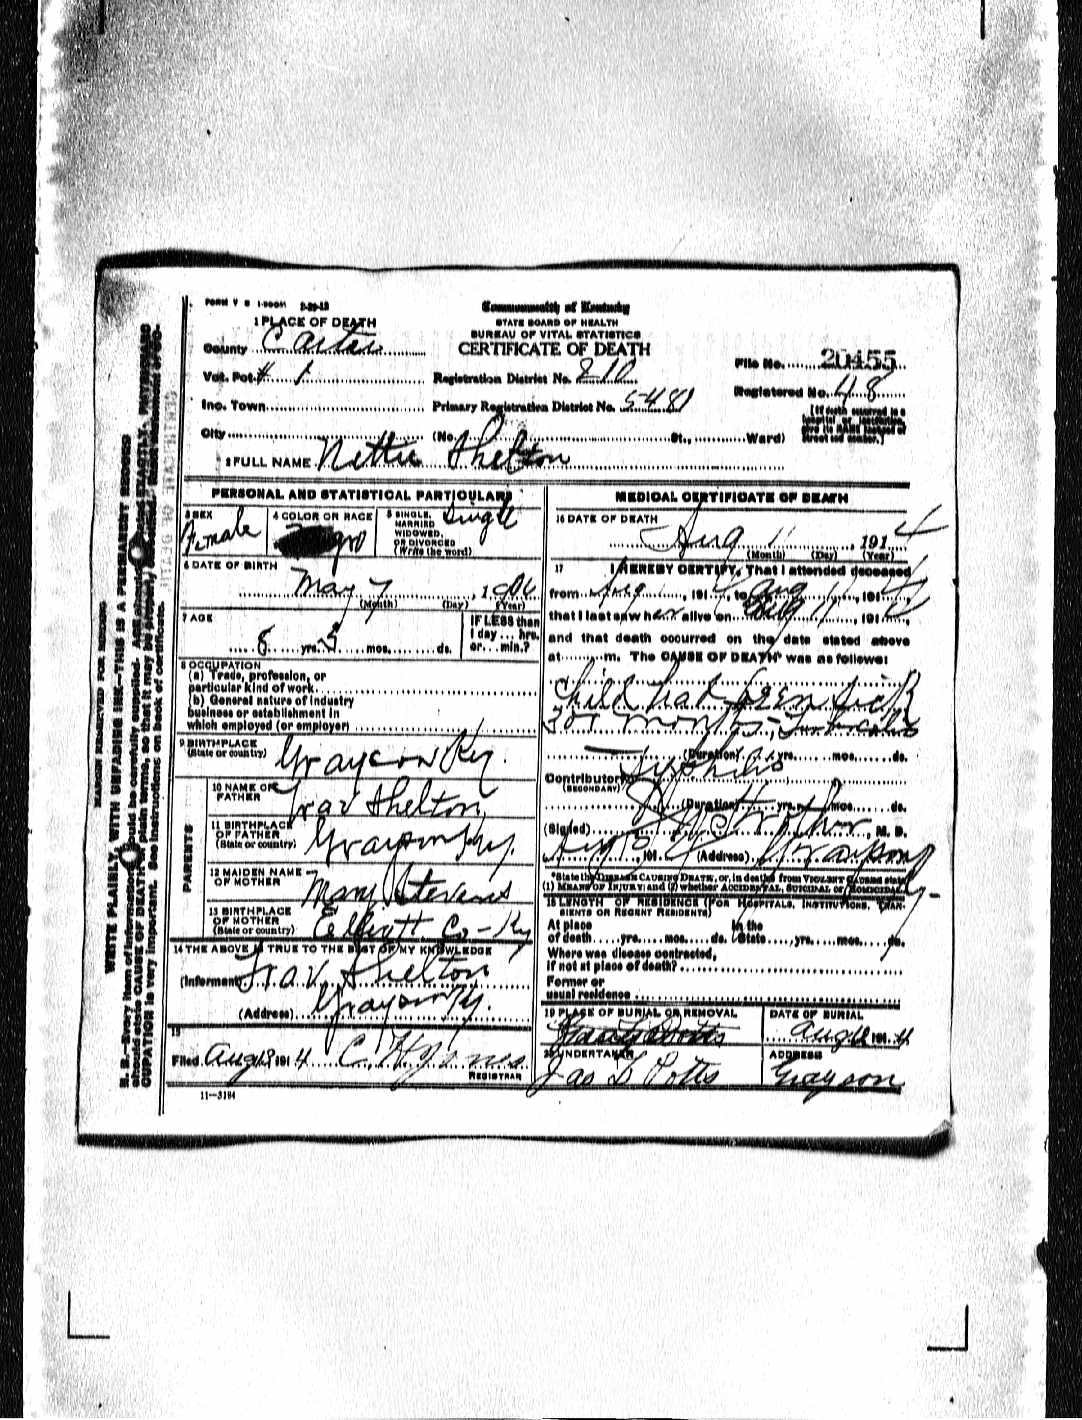 FORM V S 1-500M 2-28-13
Commonwealth of Kentucky
STATE BOARD OF HEALTH
BUREAU OF VITAL STATISTICS
CERTIFICATE OF DEATH
1 PLACE OF DEATH
County Carter
Vot. Pct # 1
Registration District No. 210
File No. 20455
Inc. Town
Primary Registration District No. 5481
Registered No. 48
[If death occurred in a hospital or institution, give its NAME instead of street and number.]
City (No. St., Ward)
2 FULL NAME Nettie Shelton
PERSONAL AND STATISTICAL PARTICULARS
3 SEX Female
4 COLOR OR RACE
5 SINGLE, MARRIED WIDOWED, OR DIVORCED (Write the word) Single
6 DATE OF BIRTH
May 7, 1906
(Month) (Day) (Year)
7 AGE
8 yrs. 3 mos. ds.
IF LESS than 1 day ... hrs. or ... min.?
8 OCCUPATION
(a) Trade, profession, or
particular kind of work
(b) General nature of industry
business or establishment in
which employed (or employer)
9 BIRTHPLACE
(State or country) Grayson Ky.
PARENTS
10 NAME OF FATHER Shelton
11 BIRTHPLACE OF FATHER (State or country) Grayson Ky.
12 MAIDEN NAME OF MOTHER Mary Stevens
13 BIRTHPLACE OF MOTHER (State or country) Elliott Co - Ky
14 THE ABOVE IS TRUE TO THE BEST OF MY KNOWLEDGE
(Informant) Shelton
(Address) Grayson Ky.
15
Filed Aug 1914 C. H. Jones
REGISTRAR
11—3184
MEDICAL CERTIFICATE OF DEATH
16 DATE OF DEATH
Aug 11, 1914
(Month) (Day) (Year)
17 I HEREBY CERTIFY, That I attended deceased
from Aug, 1914, to Aug, 1914
that I last saw her alive on Aug 11, 191
and that death occurred on the date stated above
at m. The CAUSE OF DEATH* was as follows:
Child had been sick
3 or months,
(Duration) yrs. mos. ds.
Contributory Syphilis
(SECONDARY)
(Duration) yrs. mos. ds.
(Signed) Strother M. D.
191 4 (Address) Grayson
*State the DISEASE CAUSING DEATH, or, in deaths from VIOLENT CAUSES state
(1) MEANS OF INJURY; and (2) whether ACCIDENTAL, SUICIDAL or HOMICIDAL
18 LENGTH OF RESIDENCE (FOR HOSPITALS, INSTITUTIONS, TRANSIENTS OR RECENT RESIDENTS)
At place of death yrs. mos. ds. In the State yrs. mos. ds.
Where was disease contracted,
if not at place of death?
Former or
usual residence
19 PLACE OF BURIAL OR REMOVAL
DATE OF BURIAL
Aug 1914
20 UNDERTAKER
Jas D Potts
ADDRESS
Grayson
MARGIN RESERVED FOR BINDING
WRITE PLAINLY, WITH UNFADING INK—THIS IS A PERMANENT RECORD
N. B.—Every item of information should be carefully supplied. AGE should be stated EXACTLY. PHYSICIANS
should state CAUSE OF DEATH in plain terms, so that it may be properly classified. Exact statement of OC-
CUPATION is very important. See instructions on back of certificate.